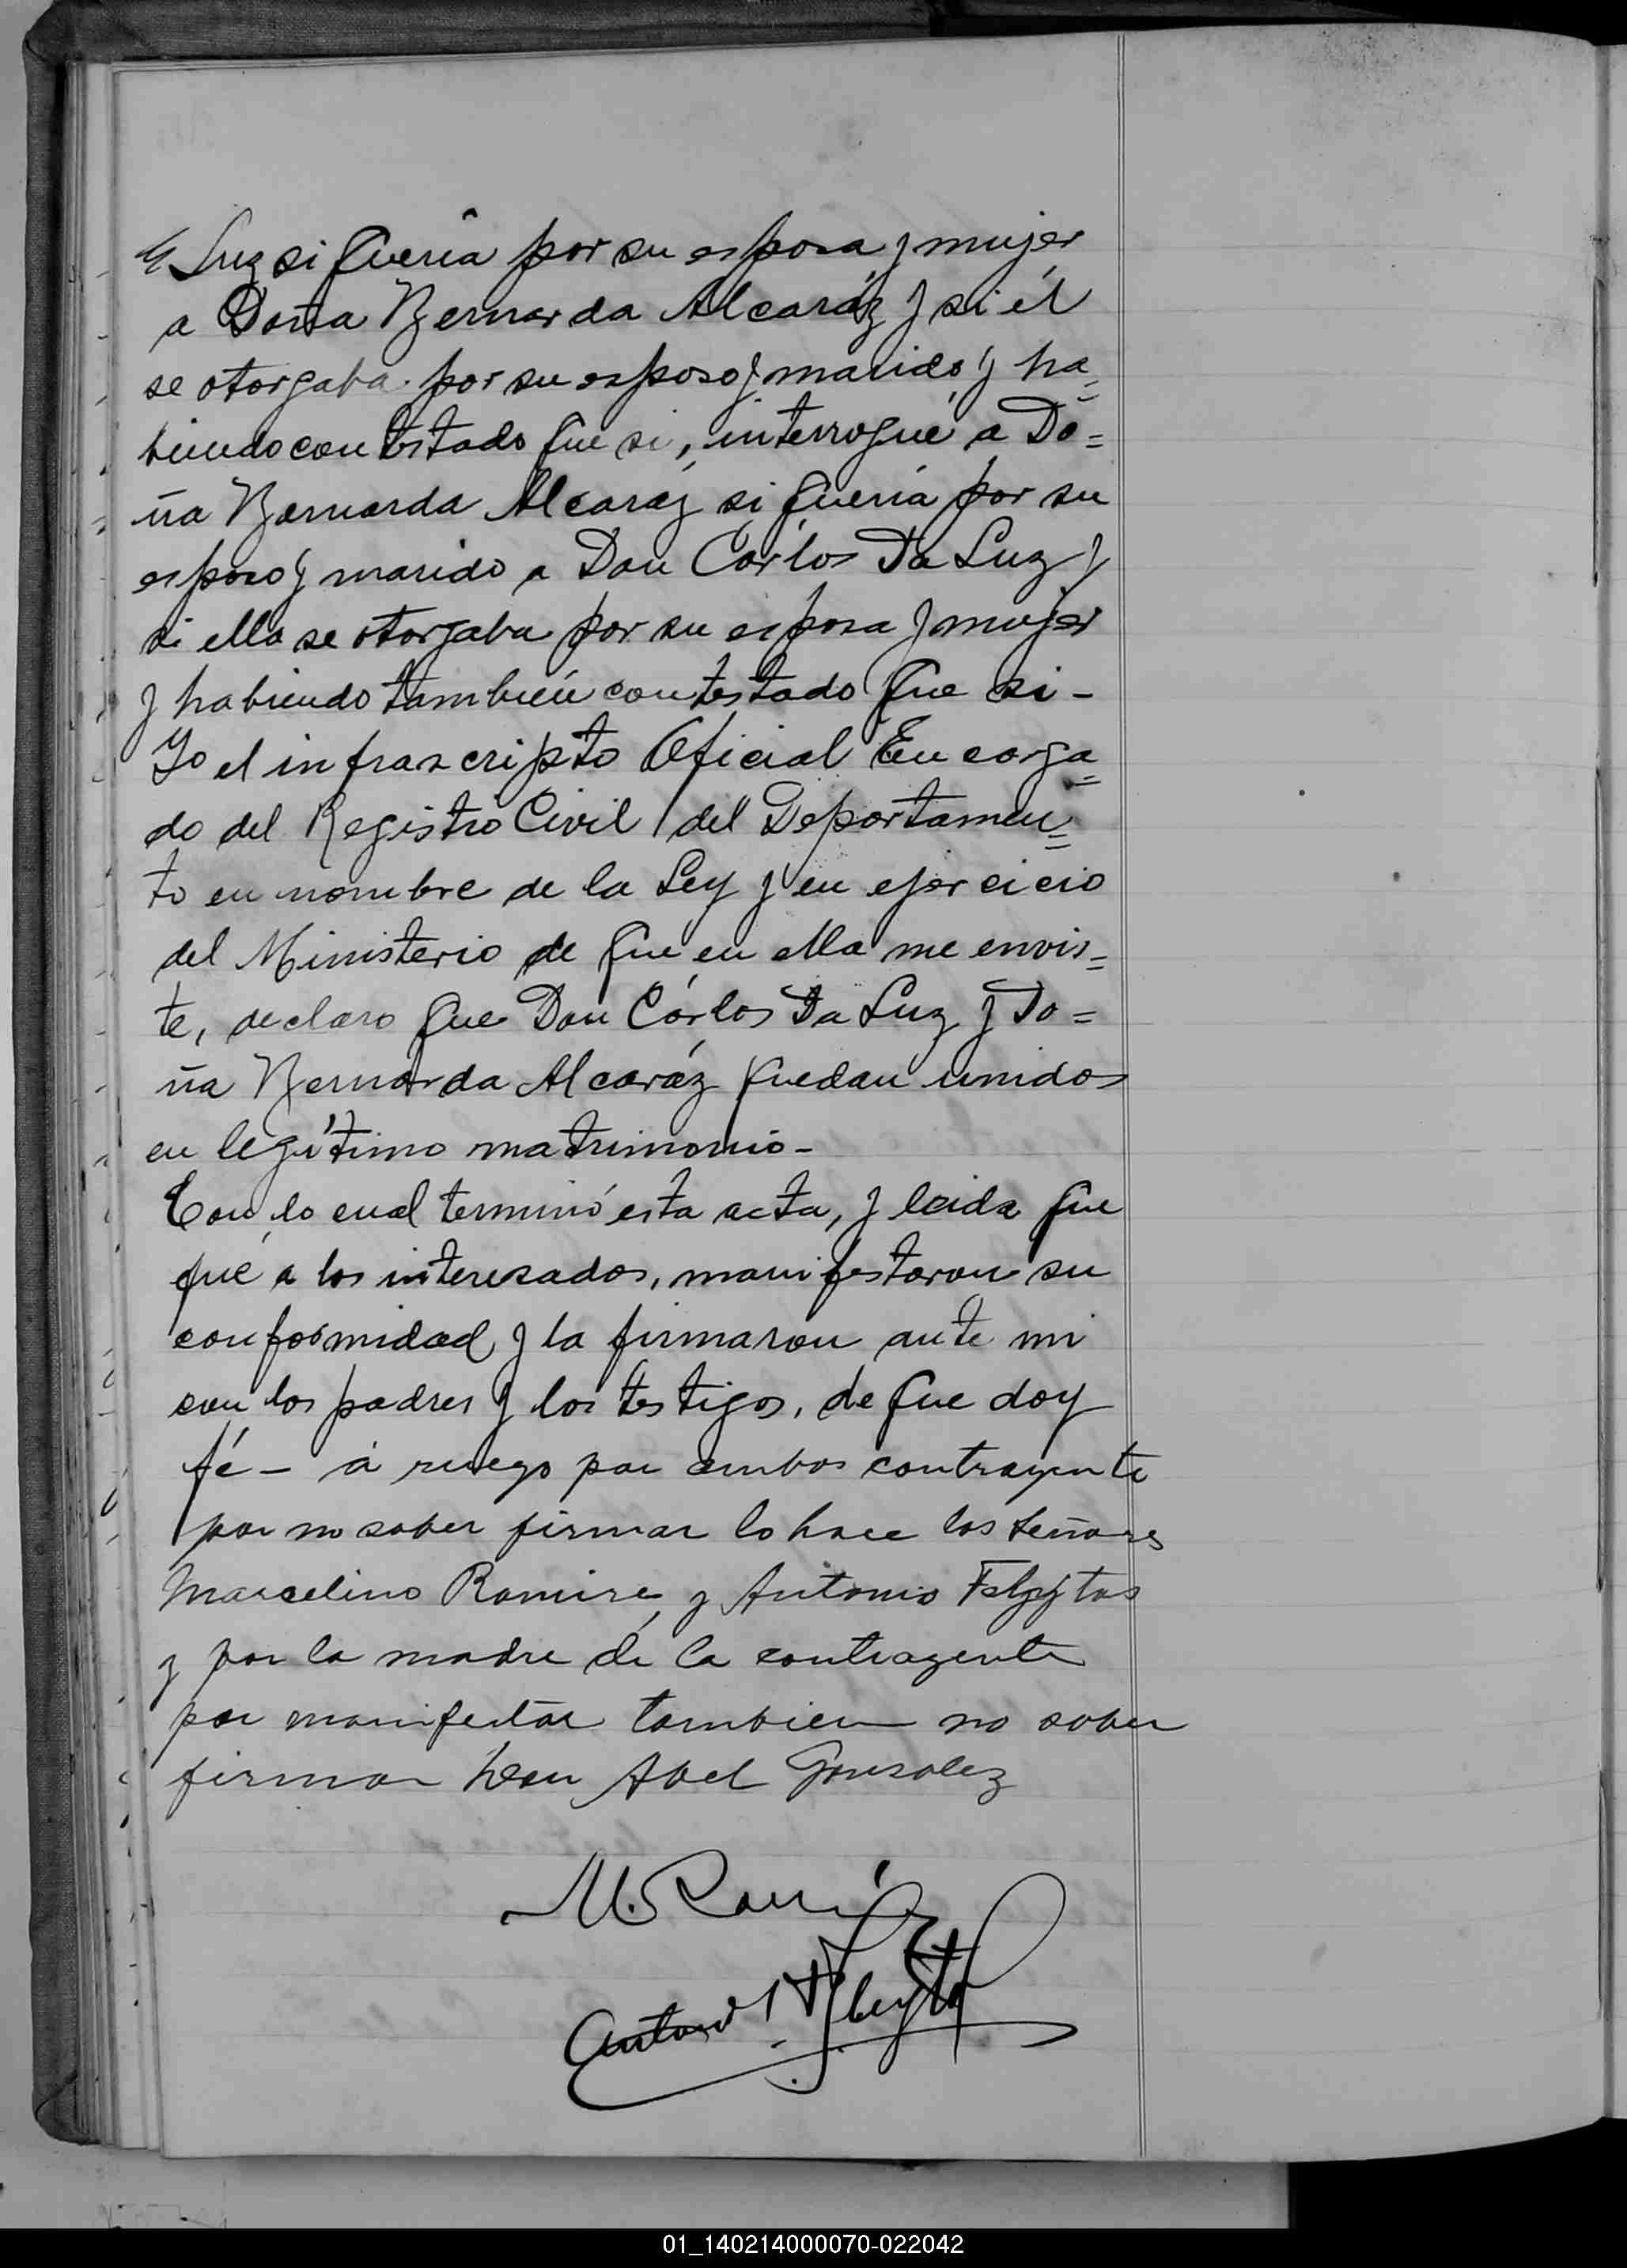 Luz si queria por su esposa y mujer
a Doña Bernarda Alcaráz y si él
se otorgaba por su esposo y marido y ha=
biendo contestado que si, interrogué a Do=
ña Bernarda Alcaráz si queria por su
esposo y marido a Don Cárlos Da Luz y
si ella se otorgaba por su esposa y mujer
y habiendo también contestado que si-
Yo el infrascripto Oficial Encarga=
do del Registro Civil del Departamen=
to en nombre de la Ley y en ejercicio
del Ministerio de que en ella me envis=
te, declaro que Don Cárlos Da Luz y Do=
ña Bernarda Alcaráz quedan unidos
en legítimo matrimonio-
Con lo cual terminó esta acta, y leida que
fué a los interesados, manifestaron su
conformidad y la firmaron ante mi
con los padres y los testigos, de que doy
fé- á ruego por ambos contrayente
por no saber firmar lo hace los señores
Marcelino Ramirez y Antonio
y por la madre de la contrayente
por manifestar tambien no saber
firmar Don Abel Gonsalez
M. Ramírez
Antonio
01_140214000070-022042